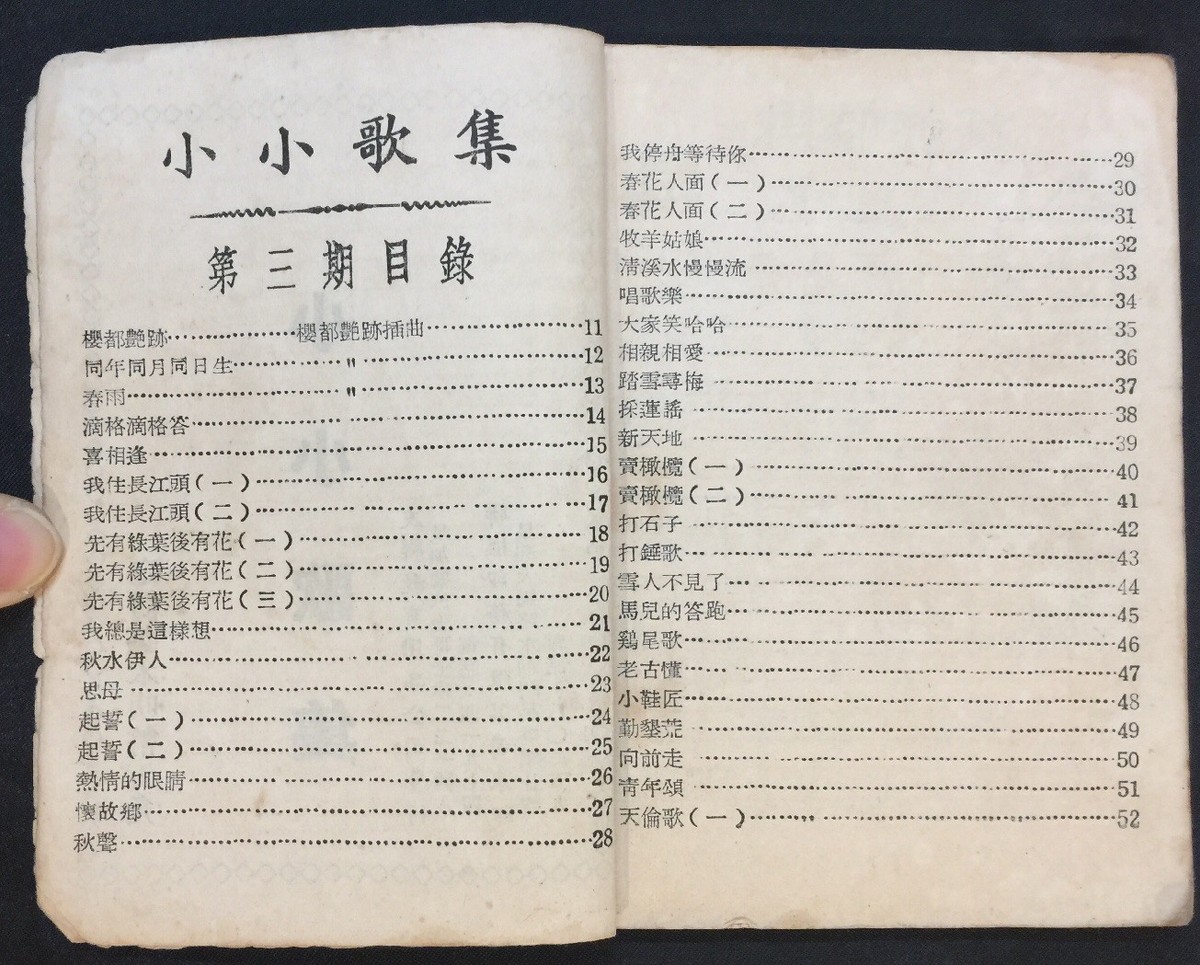 小小歌集
第三期目錄
櫻都艷跡……………櫻都艷跡插曲………………11
同年同月同日生…………… 〃 ……………………12
春雨…………………… 〃 ……………………13
滴格滴格答……………………………………14
喜相逢……………………………………15
我住長江頭(一)……………………………………16
我住長江頭(二)……………………………………17
先有綠葉後有花(一)……………………………………18
先有綠葉後有花(二)……………………………………19
先有綠葉後有花(三)……………………………………20
我總是這樣想……………………………………21
秋水伊人……………………………………22
思母……………………………………23
起誓(一)……………………………………24
起誓(二)……………………………………25
熱情的眼睛……………………………………26
懷故鄉……………………………………27
秋聲……………………………………28
我停舟等待你……………………………………29
春花人面(一)……………………………………30
春花人面(二)……………………………………31
牧羊姑娘……………………………………32
清溪水慢慢流……………………………………33
唱歌樂……………………………………34
大家笑哈哈……………………………………35
相親相愛……………………………………36
踏雪尋梅……………………………………37
採蓮謠……………………………………38
新天地……………………………………39
賣橄欖(一)……………………………………40
賣橄欖(二)……………………………………41
打石子……………………………………42
打錘歌……………………………………43
雪人不見了……………………………………44
馬兒的答跑……………………………………45
鷄尾歌……………………………………46
老古懂……………………………………47
小鞋匠……………………………………48
勤墾荒……………………………………49
向前走……………………………………50
青年頌……………………………………51
天倫歌(一)……………………………………52